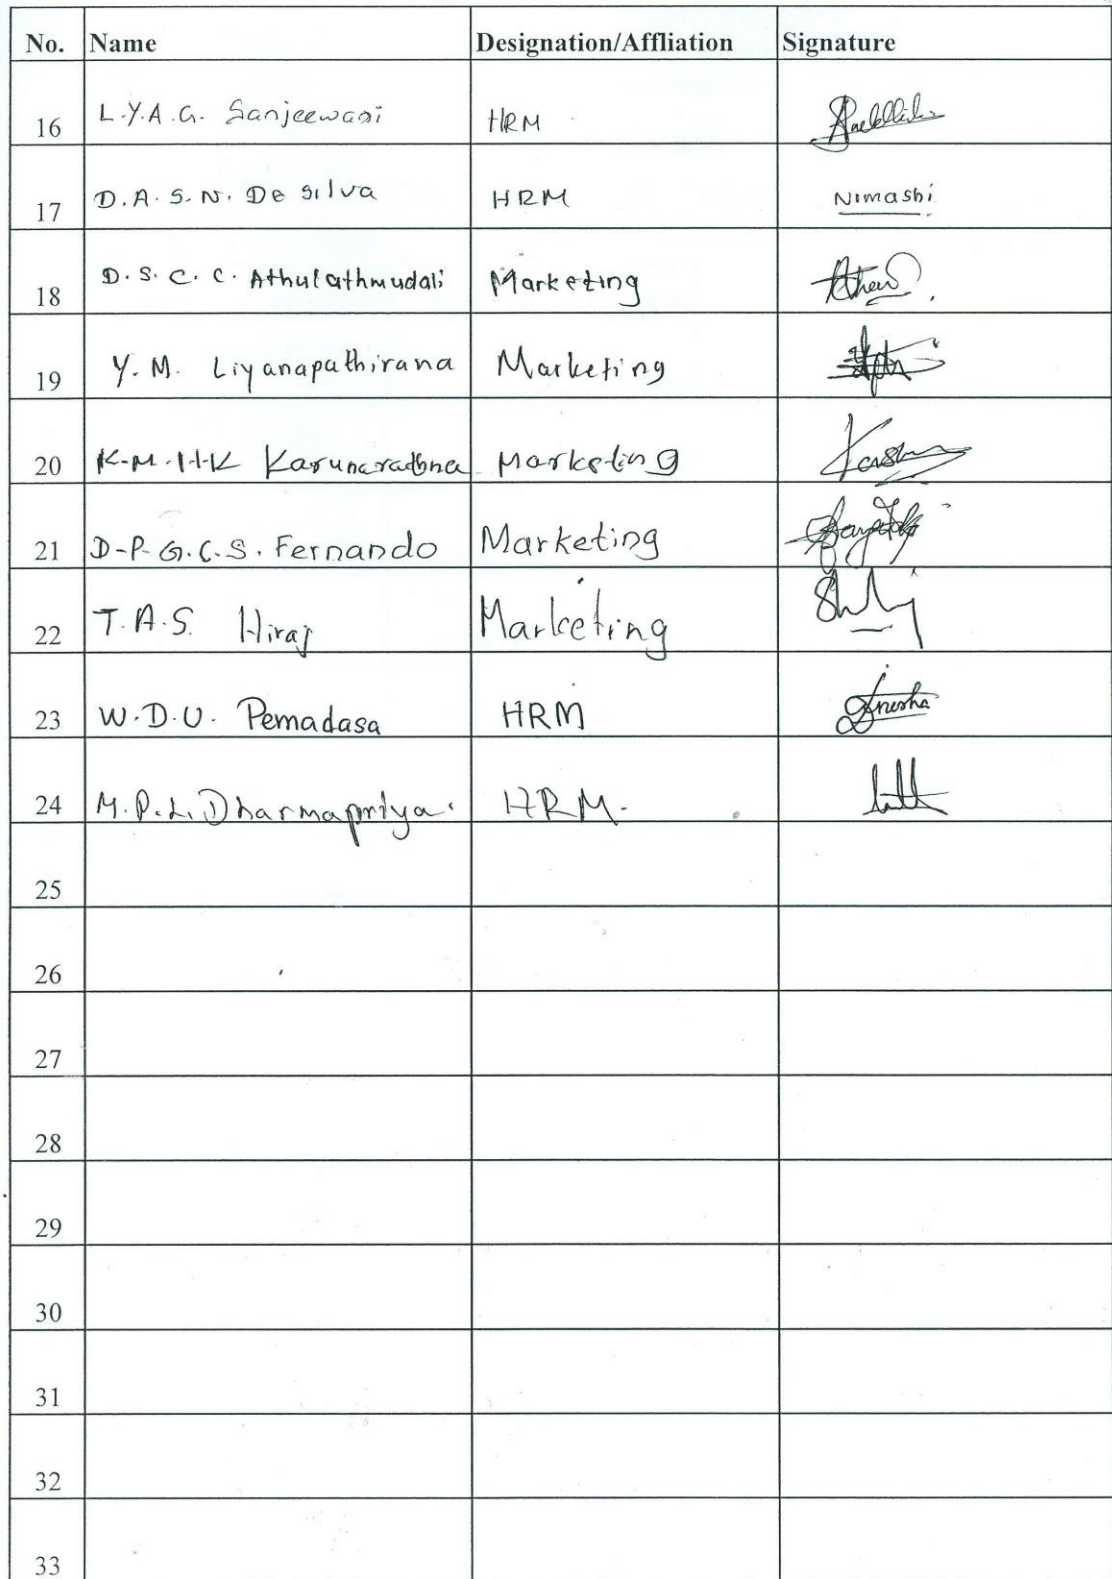 No. Name Designation/Affliation Signature
16 L.Y.A.G. Sanjeewani HRM
17 D.A.S.N. De Silva HRM Nimashi
18 D.S.C.C. Athulathmudali Marketing
19 Y.M. Liyanapathirana Marketing
20 K.M.H.K Karunarathna Marketing
21 D.P.G.C.S. Fernando Marketing
22 T.A.S. Hiraj Marketing
23 W.D.U. Pemadasa HRM
24 M.P.L. Dharmapriya. HRM.
25
26
27
28
29
30
31
32
33